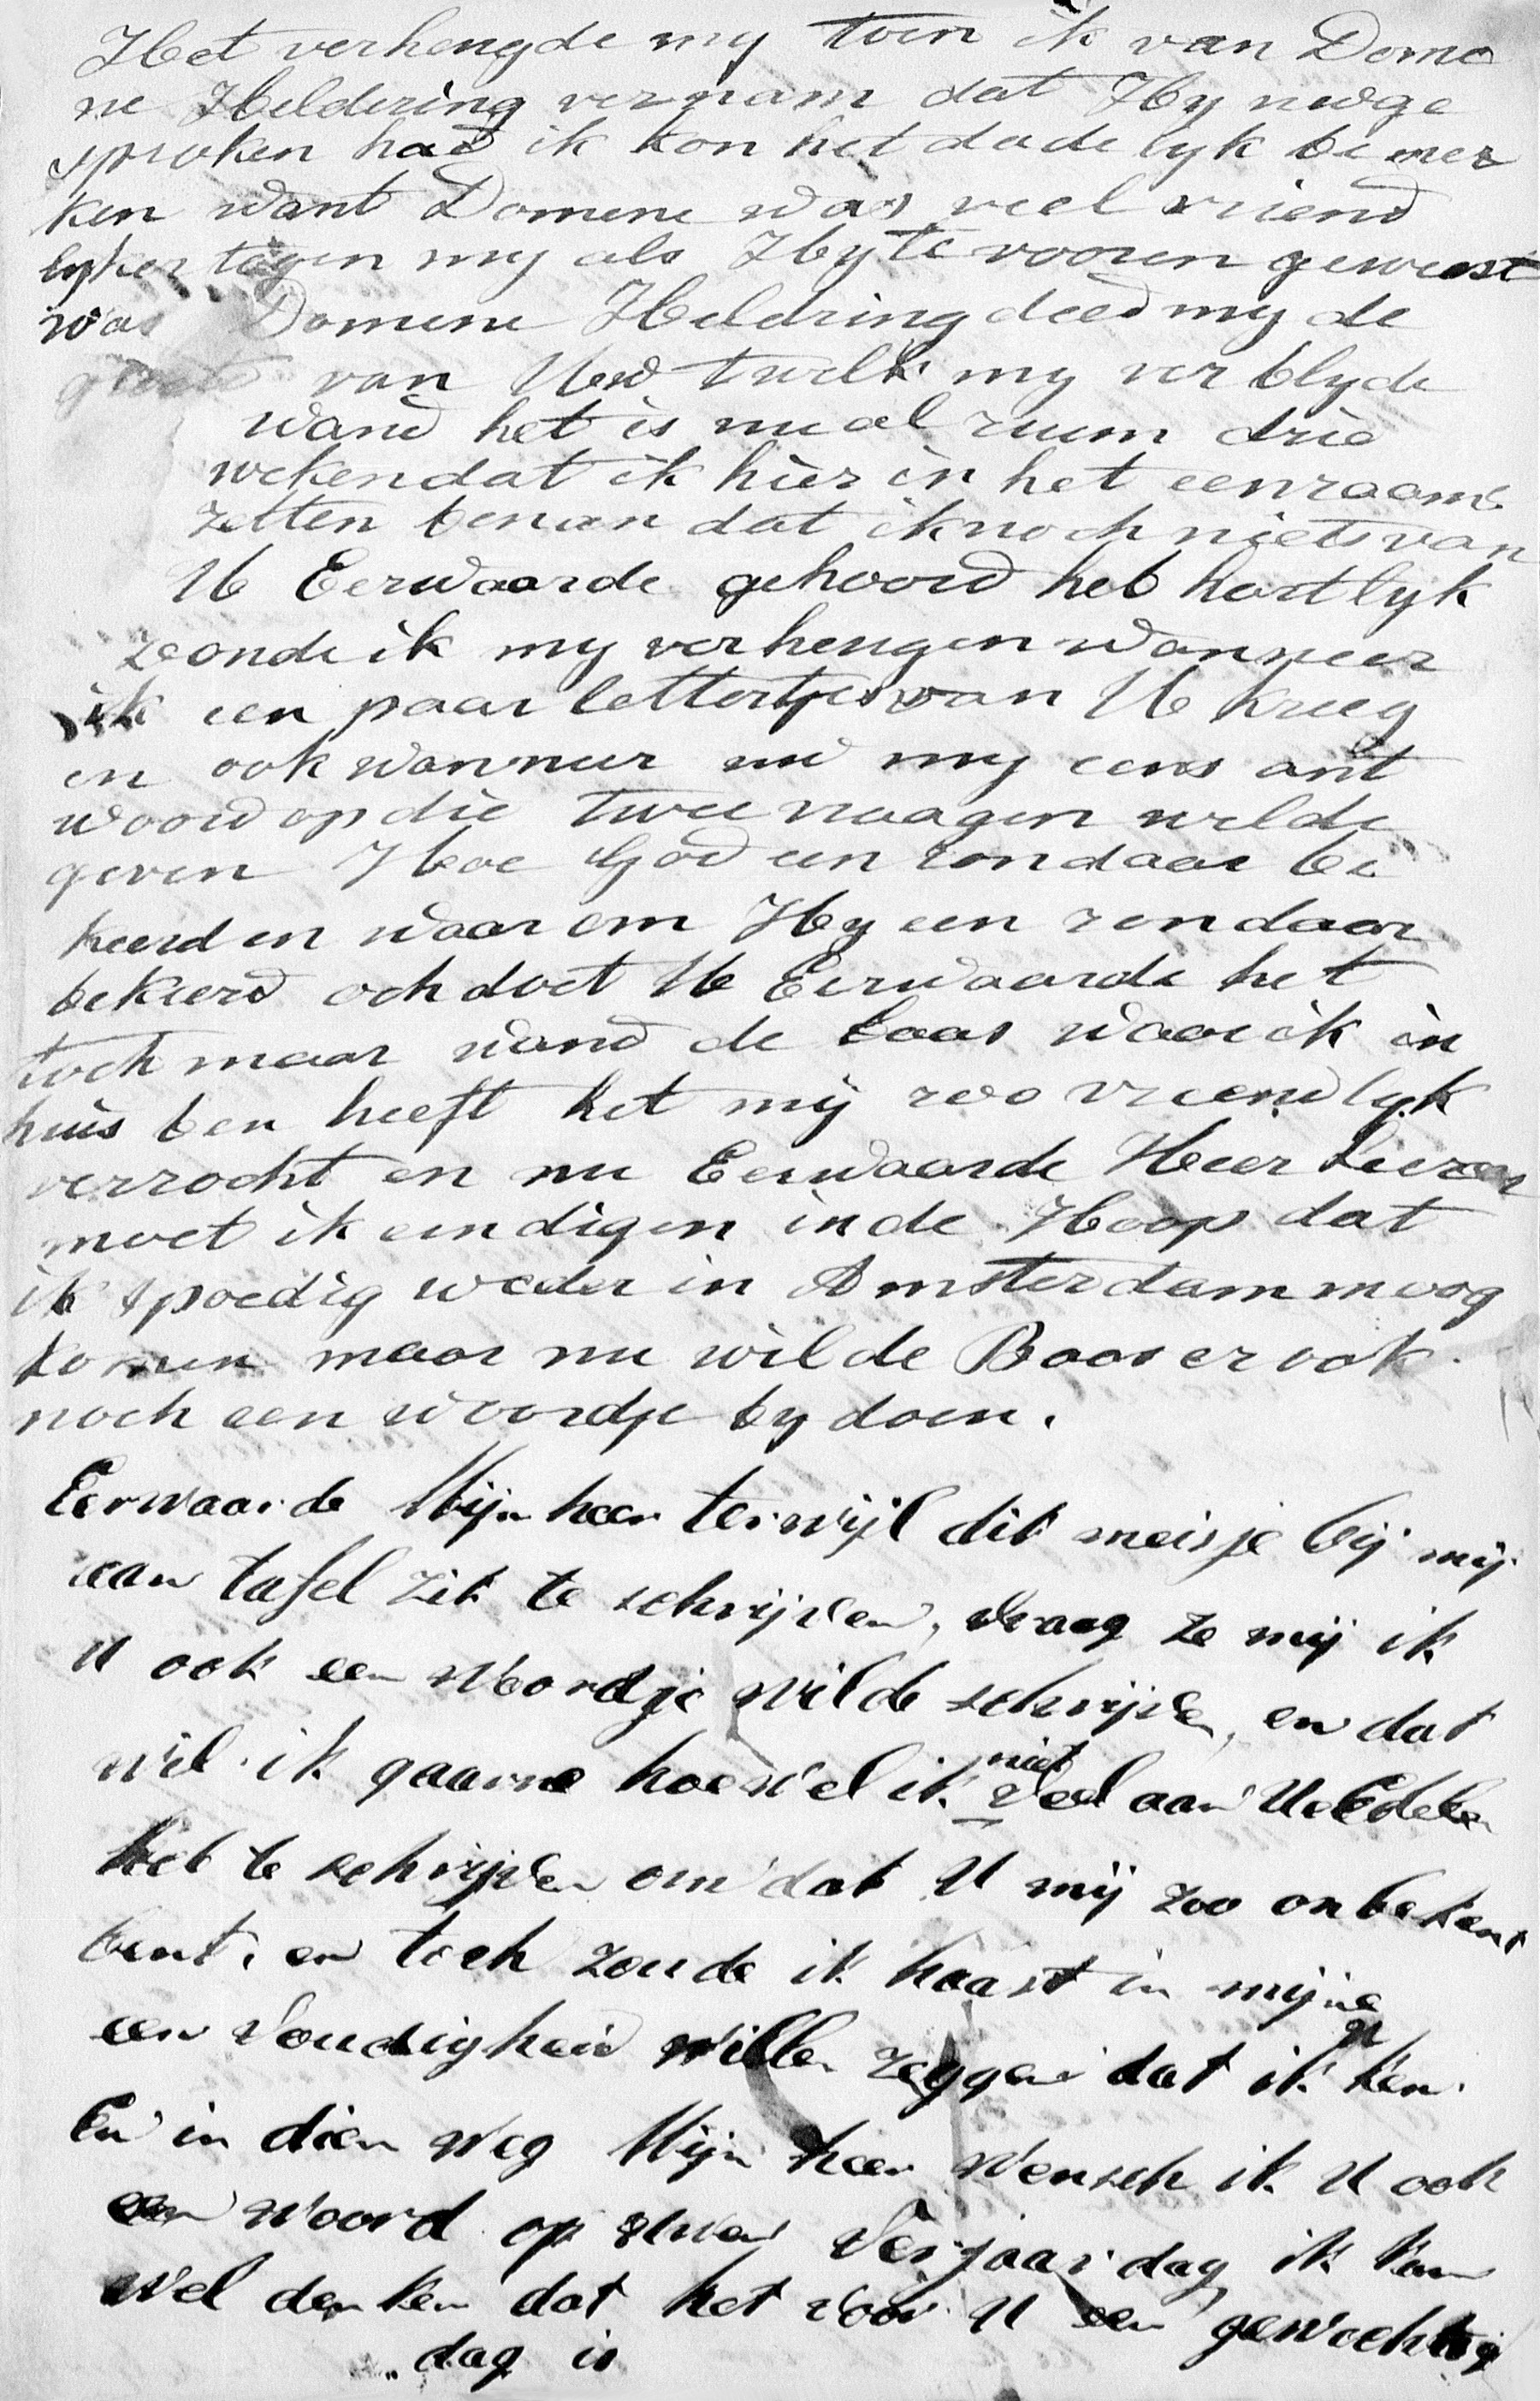 Het verhengde my toen ik van Dome
ne Heldering vernam dat Hy uwge
sproken had ik kon het dade lyk bemer
ken want Domene was veel vriend
lyker tegen my als Hy te vooren geweest
was Domene Heldring deed my de
groete van Uw twelk my ver blyde
wand het is nu al ruim drie
weken dat ik hier in het eenzaame
Zetten ben an dat ik noch niets van
U Eerwaarde gehoord heb hartlyk
zoonde ik my verhengen wanneer
ik een paar lettertjes van U kreeg
en ook wanneer uw my eens ant
woord op die twee vraagen wilde
geven Hoe God een zondaar be
keerd en waarom Hy een zondaar
bekeerd och doet U Eerwaarde het
toch maar wand de baas waar ik in
huis ben heeft het mij zoo vriendlyk
verzocht en nu Eerwaarde Heer
moet ik eindigen in de Hoop dat
ik spoedig weder in Amsterdam moog
komen maar nu wil de Baas er ook
noch een woordje by doen.
Eerwaarde Mijn heer terwijl dit meisje bij mij
aan tafel zit te schrijven, vraag ze mij ik
U ook een woordje wilde schrijven, en dat
wil ik gaarne hoewel ik niet veel aan UwEdele
heb te schrijven om dat U mij zoo onbekent
bent, en toch zoude ik haast in mijne
een voudigheid willen zeggen dat ik U ken.
En in dien weg Mijn heer wensch ik U ook
een woord op uwen Verjaardag, ik kan
wel denken dat het voor U een gewichtig
dag is